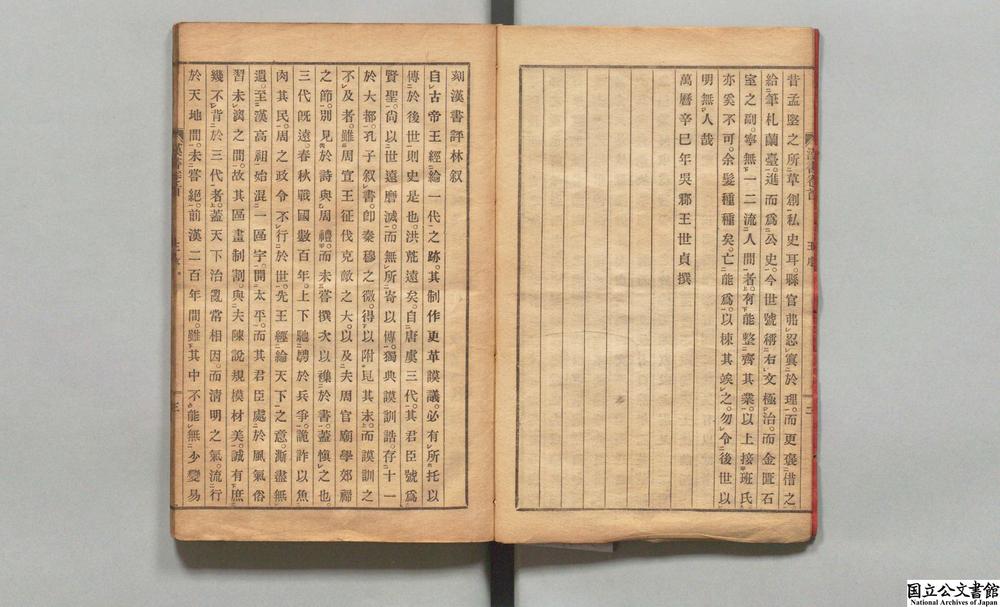 昔孟堅之所草創私史耳。縣官弗忍寘於理。而更褒借之
給筆札蘭臺。進而爲公史。今世號稱右文極治。而金匱石
室之副。寧無一二流人間者。有能整齊其業。以上接班氏。
亦奚不可。余髮種種矣。亡能爲。以竢其竢之。勿令後世以
明無人哉
萬曆辛巳年吳郡王世貞撰
刻漢書評林叙
自古帝王經綸一代之跡。其制作更革謨議。必有所托以
傳於後世。則史是也。洪荒遠矣。自唐虞三代。其君臣號爲
賢聖。尙以世遠磨滅。而無所寄以傳。獨典謨訓誥。存十一
於大都。孔子叙書。卽秦穆之微。得以附見其末。而謨訓之
不及者。雖周宣王征伐克敵之大。以及夫周官廟學郊禘
之節。別見於詩與周禮。而未嘗撰次以襍於書。蓋愼之也。
三代旣遠。春秋戰國數百年。上下馳騁於兵爭。詭詐以魚
肉其民。周之政令不行於世。先王經綸天下之意。澌盡無
遺。至漢高祖始混一區宇。開太平。而其君臣處於風氣俗
習未漓之間。故其區畫制割。與夫陳說規模材美。誠有庶
幾不背於三代者。蓋天下治亂常相因。而清明之氣。流行
於天地間。未嘗絕。前漢二百年間。雖其中不能無少變易
国立公文書館
National Archives of Japan